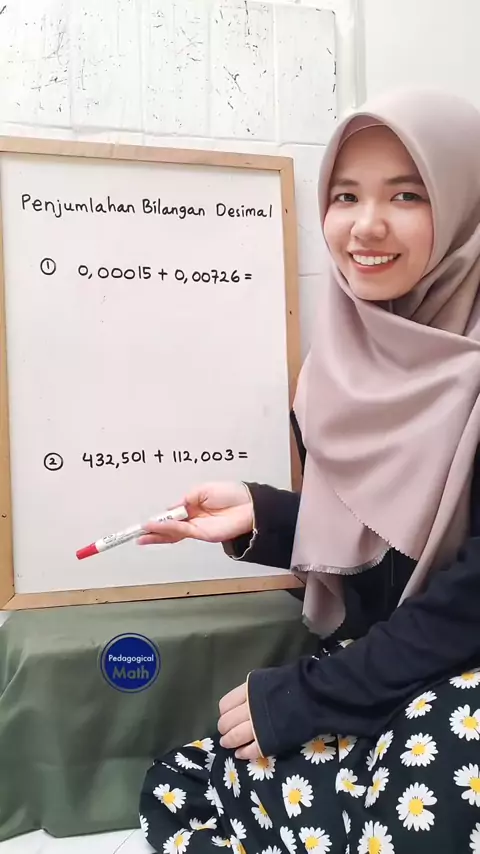 Penjumlahan Bilangan Desimal
① 0,00015 + 0,00726 =
② 432,501 + 112,003 =
Pedagogical
Math